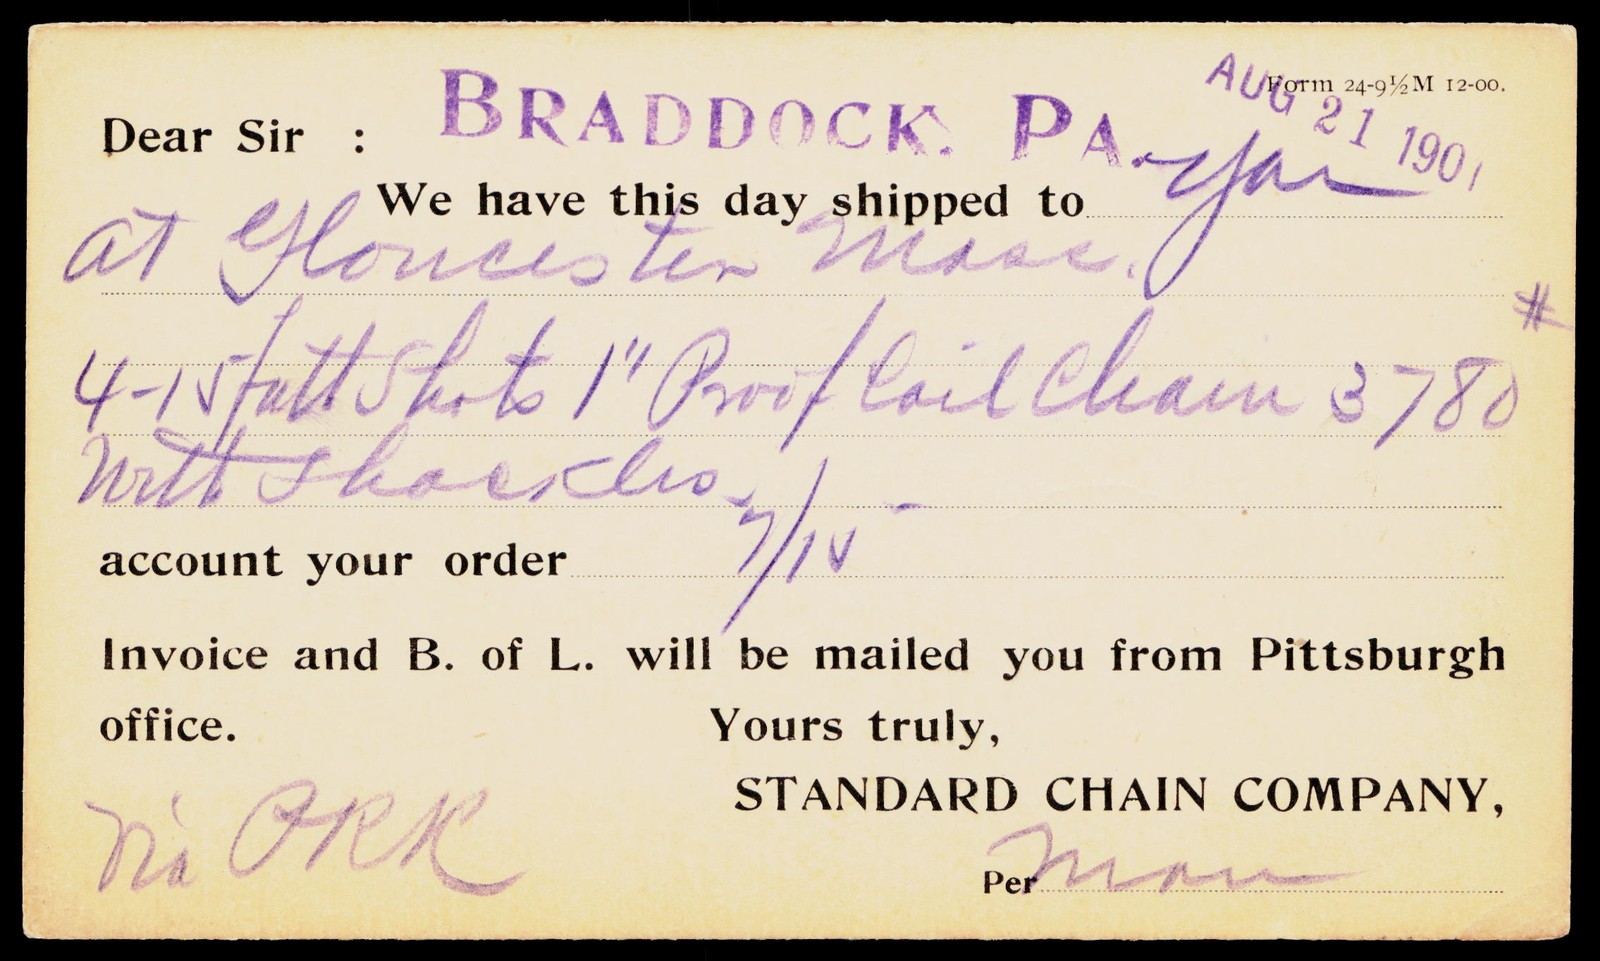 Form 24-9½M 12-00.
AUG 21 1901
BRADDOCK. PA.
Dear Sir :
We have this day shipped to You
at Gloucester Mass.
#
4-15 fath Shots 1" Proof Coil Chain 3780
With Shackles.
account your order 7/15
Invoice and B. of L. will be mailed you from Pittsburgh
office. Yours truly,
STANDARD CHAIN COMPANY,
Via PRR
Per